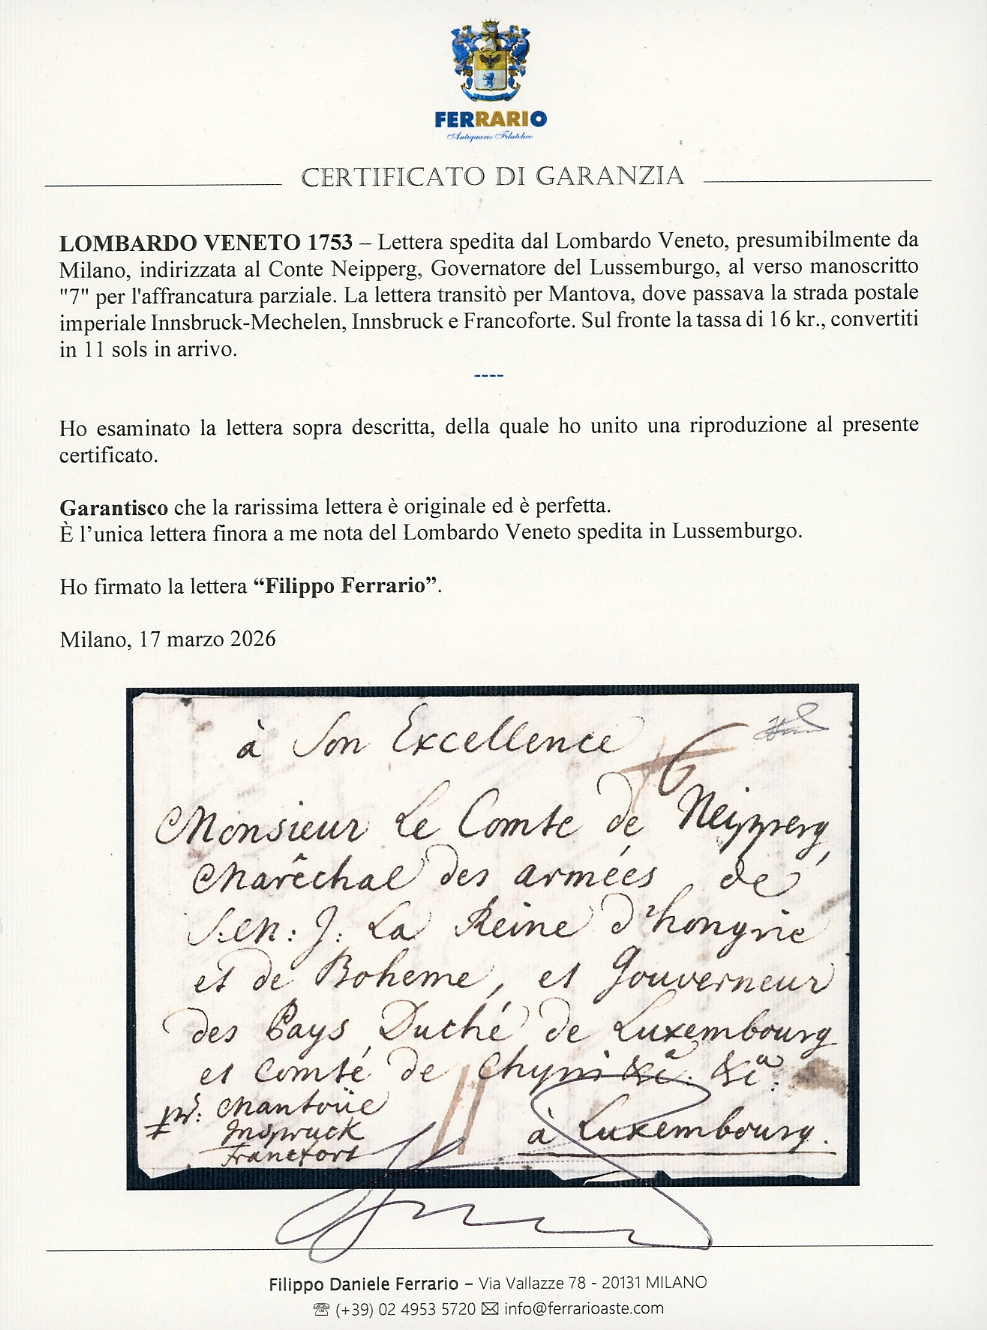 FERRARIO
Antiquario Filatelico
CERTIFICATO DI GARANZIA
LOMBARDO VENETO 1753 – Lettera spedita dal Lombardo Veneto, presumibilmente da
Milano, indirizzata al Conte Neipperg, Governatore del Lussemburgo, al verso manoscritto
"7" per l'affrancatura parziale. La lettera transitò per Mantova, dove passava la strada postale
imperiale Innsbruck-Mechelen, Innsbruck e Francoforte. Sul fronte la tassa di 16 kr., convertiti
in 11 sols in arrivo.
----
Ho esaminato la lettera sopra descritta, della quale ho unito una riproduzione al presente
certificato.
Garantisco che la rarissima lettera è originale ed è perfetta.
È l’unica lettera finora a me nota del Lombardo Veneto spedita in Lussemburgo.
Ho firmato la lettera “Filippo Ferrario”.
Milano, 17 marzo 2026
à Son Excellence
Monsieur Le Comte de Neipperg,
Marêchal des armées de
S.M: J: La Reine d'hongrie
et de Boheme, et Gouverneur
des Pays Duché de Luxembourg
et Comté de Chyni &ca. &ca:
pr: Mantoüe
Inspruck
francfort
11
à Luxembourg.
Filippo Daniele Ferrario – Via Vallazze 78 - 20131 MILANO
☏ (+39) 02 4953 5720 ✉ info@ferrarioaste.com